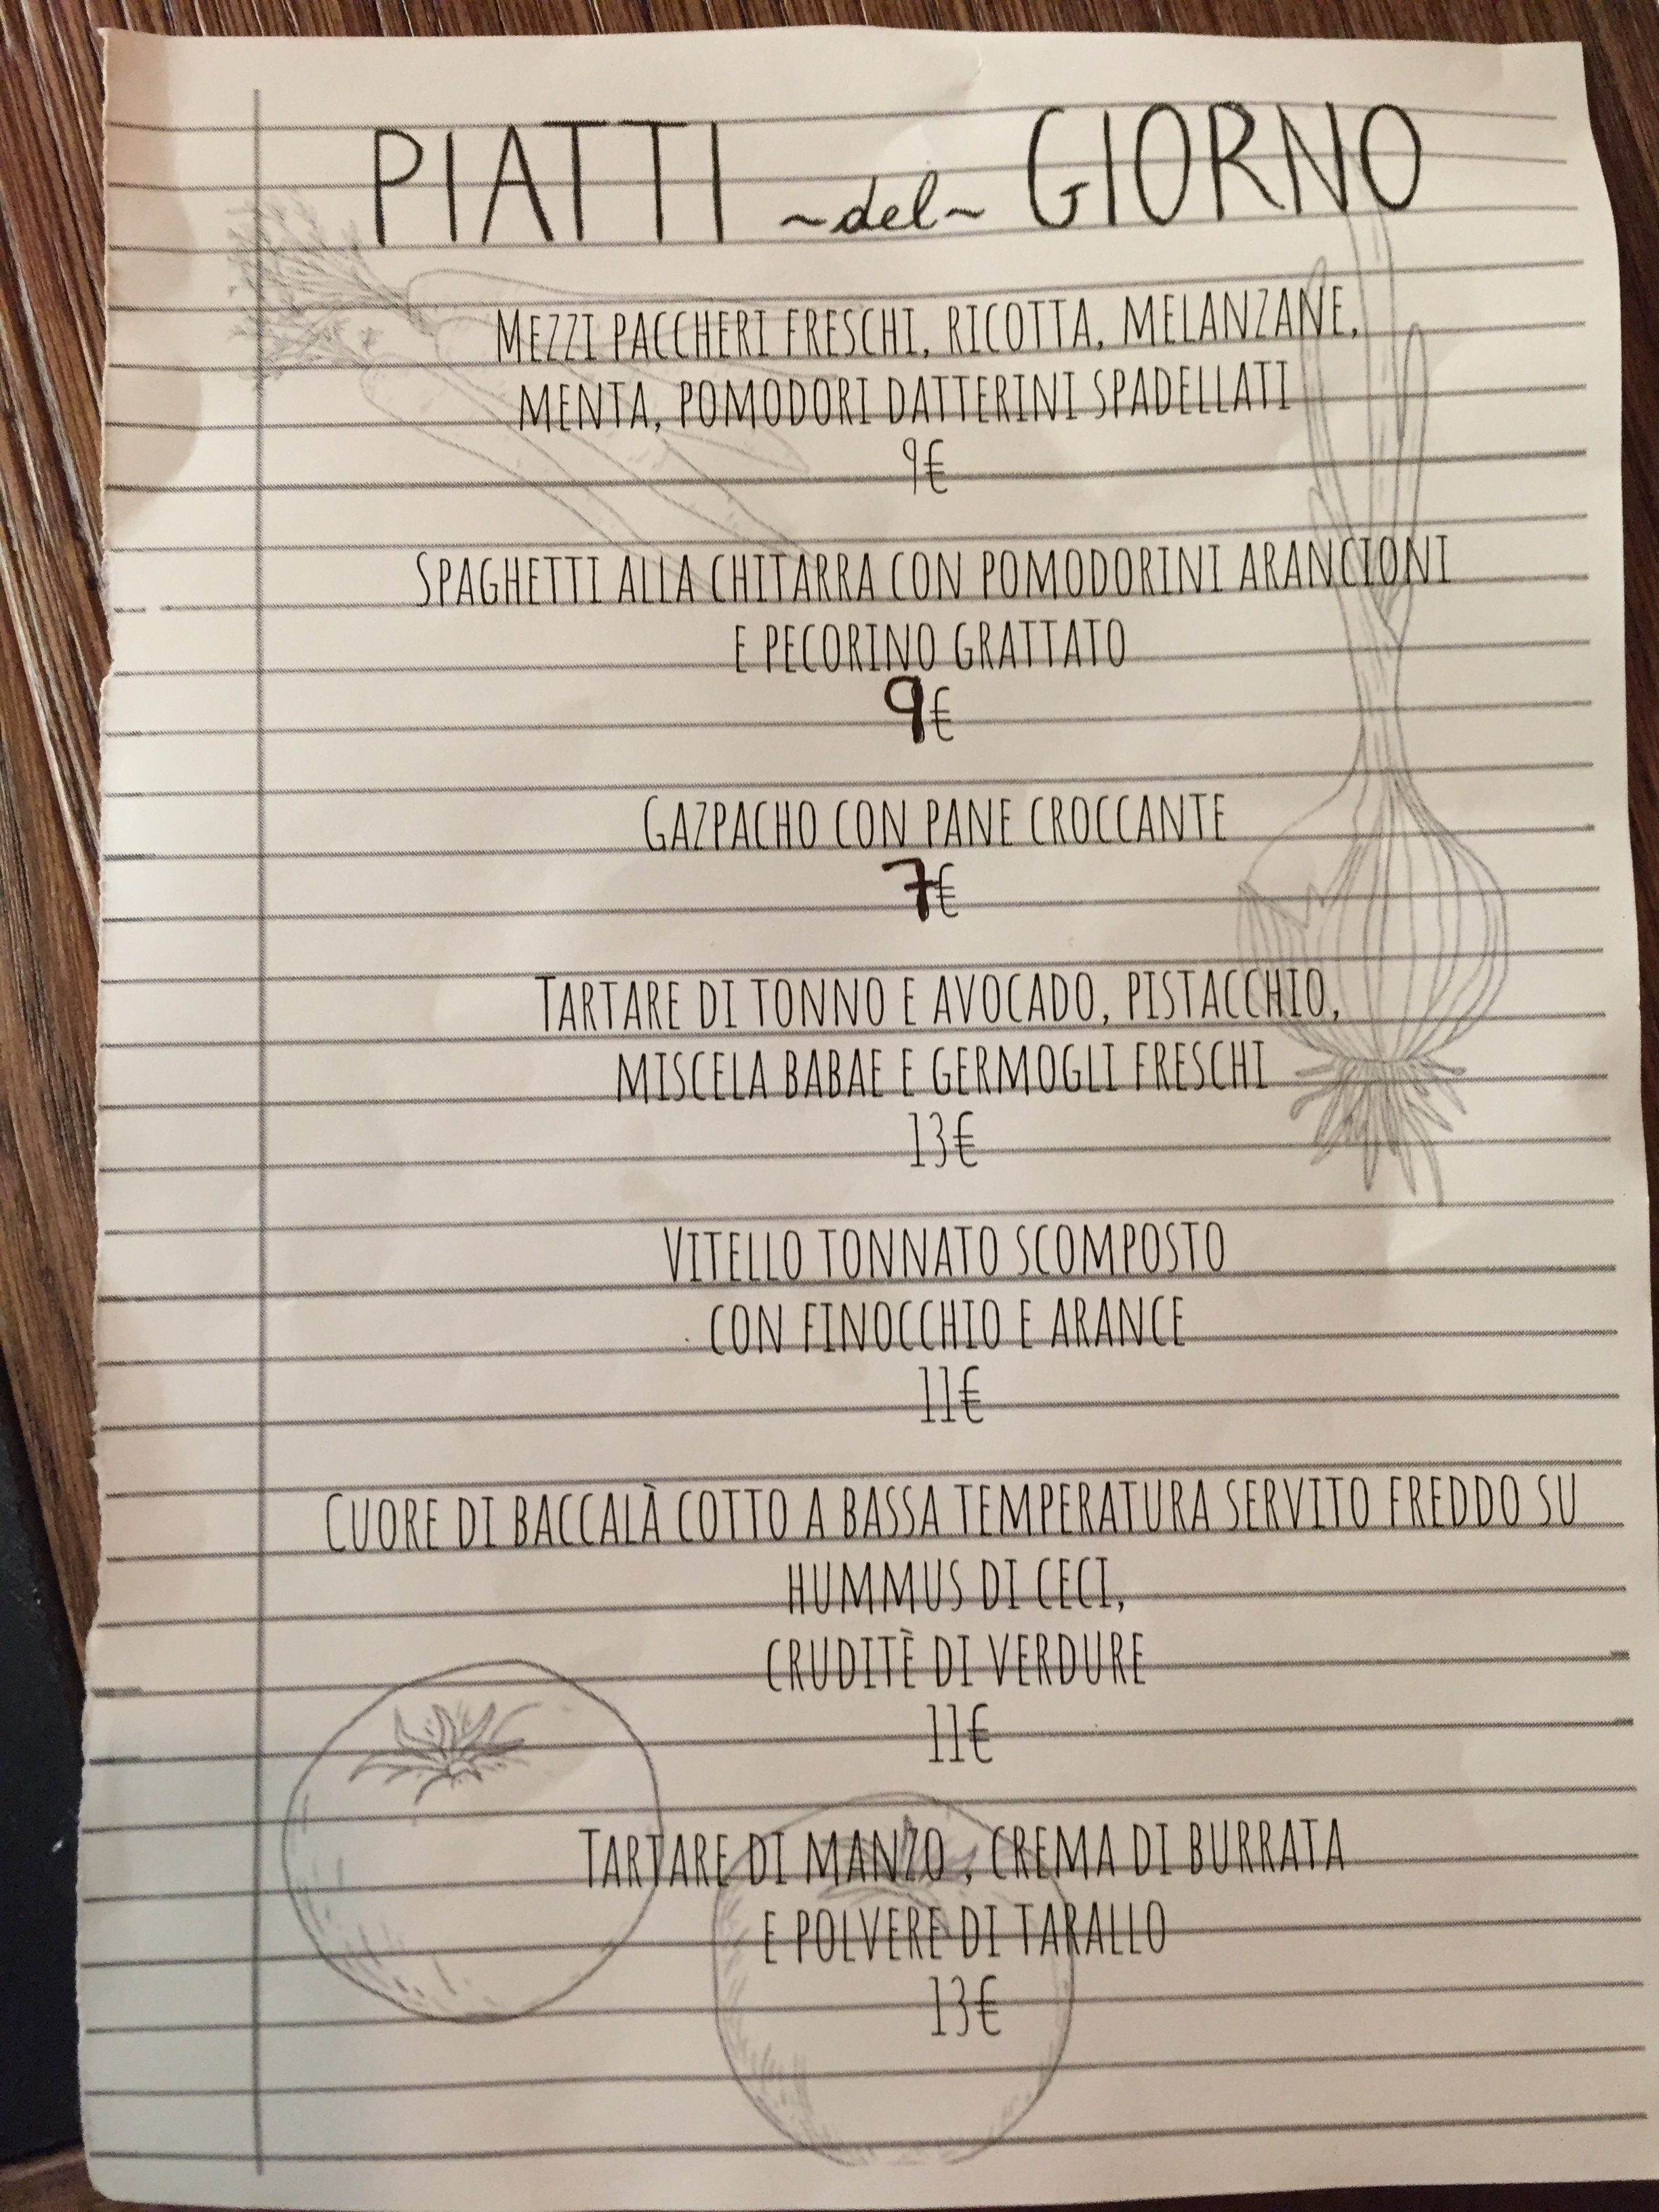 PIATTI ~del~ GIORNO
MEZZI PACCHERI FRESCHI, RICOTTA, MELANZANE,
MENTA, POMODORI DATTERINI SPADELLATI
9€
SPAGHETTI ALLA CHITARRA CON POMODORINI ARANCIONI
E PECORINO GRATTATO
9€
GAZPACHO CON PANE CROCCANTE
7€
TARTARE DI TONNO E AVOCADO, PISTACCHIO,
MISCELA BABAE E GERMOGLI FRESCHI
13€
VITELLO TONNATO SCOMPOSTO
CON FINOCCHIO E ARANCE
11€
CUORE DI BACCALÀ COTTO A BASSA TEMPERATURA SERVITO FREDDO SU
HUMMUS DI CECI,
CRUDITÈ DI VERDURE
11€
TARTARE DI MANZO , CREMA DI BURRATA
E POLVERE DI TARALLO
13€